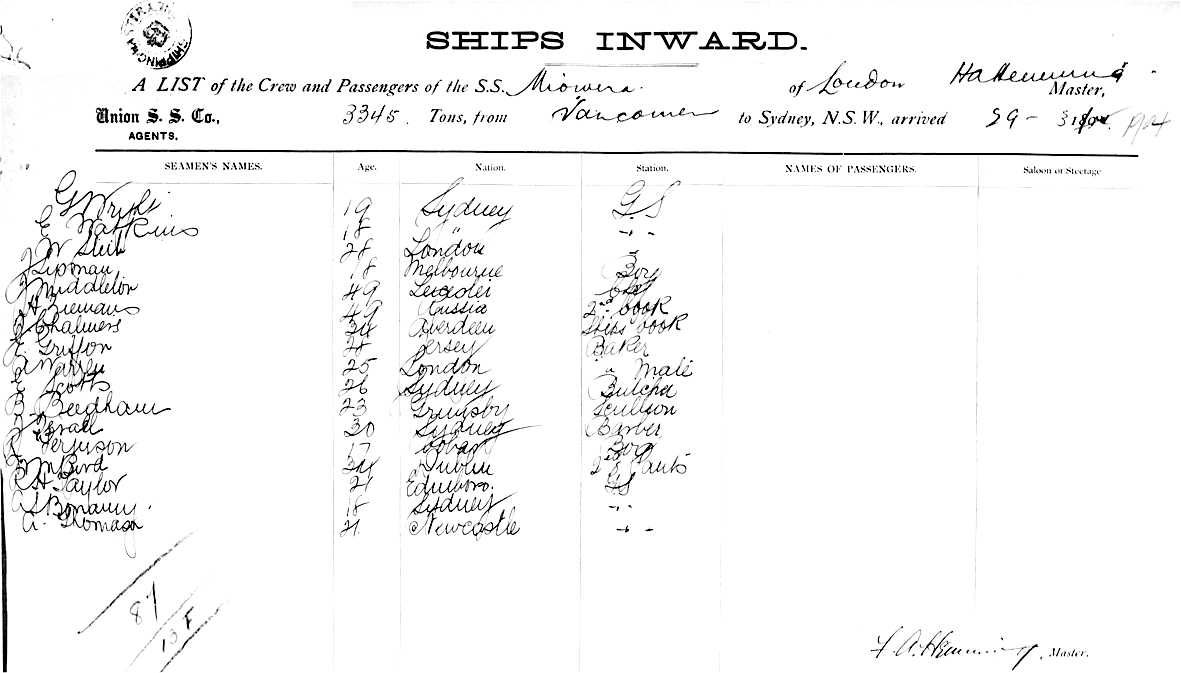 SHIPS INWARD.
A LIST of the Crew and Passengers of the S.S. Miowera. of London Hemming Master,
Union S. S. Co., 3345. Tons, from Vancouver to Sydney, N.S.W., arrived 29 - 3 1904
AGENTS.
SEAMEN'S NAMES. Age. Nation. Station. NAMES OF PASSENGERS. Saloon or Steetage
G Wright 19 Sydney G.S
E Watkins 18 " - " -
J W 28 London "
J Lipman 18 Melbourne Boy
J Middleton 49 Leicester
H 49 Russia 2nd Cook
J Chalmers 34 Aberdeen Ships Cook
J. Griffon 28 Jersey Baker
A Warren 25 London " Mate
E Scotts 26 Sydney Butcher
B. Beedham 23 Grimsby Scullion
J Israel 30 Sydney Barber
R Ferguson 17 Boy
Bird 34 Dublin 2nd
R H Taylor 21 Edinboro. GS
A S 18 Sydney " -
A. Thomason 21. Newcastle " -
87
13 F
F. A. Hemming, Master.